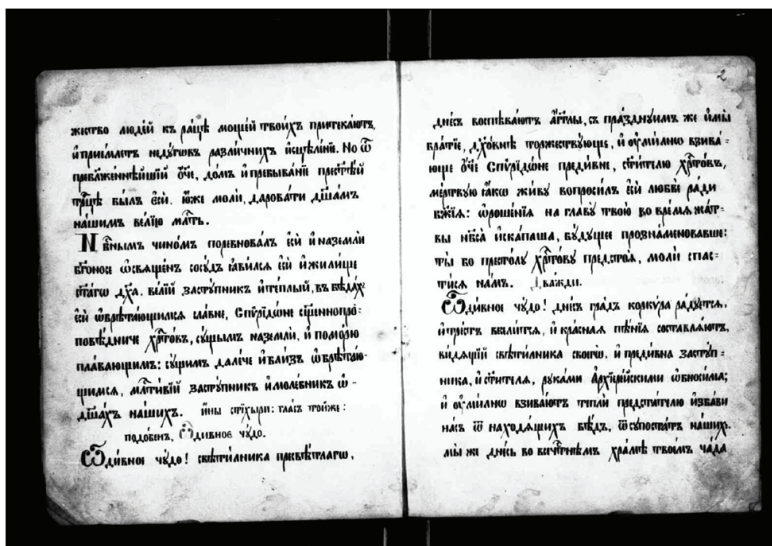 жество людей къ рацѣ мощей твоихъ притекаютъ,
и приемлетъ недугѡвъ различнихъ исцѣленїе. Но ѿ
преблаженнѣйшїй ѻ҃че, домъ и пребыванїе прест҃ѣй
тр҃цѣ былъ еси. юже моли, даровати дш҃амъ
нашимъ велїю млⷭ҇ть.
Нбⷭ҇нымъ чиномъ поревновалъ еси и наземли
бг҃оносе ѡсвященъ сосудъ ꙗвился еси и жилище
ст҃агѡ дх҃а. велїй заступникъ и теплый, въ бѣдахъ
еси ѡбрѣтающимся славне, Спѵрїдѡне сщ҃еннопро-
повѣдниче хрⷭ҇товъ, сущымъ наземлѝ, и поморю
плавающимъ: сущимъ далече и близъ ѡбрѣтаю-
щимся, млⷭ҇тивїй заступникъ и молебникъ ѡ-
дш҃ахъ нашихъ. ины стїхыри: гласъ тойже:
подобен, Ѽ дивное чꙋдо.
Ѽ дивное чꙋдо! свѣтилника пресвѣтлагѡ,
2
днесь воспѣваютъ аг҃глы, съ празднуимъ же и мы
братїе, дх҃овнѣ торжествующе, и оумилнѡ взива-
юще ѻ҃че Спѵрїдѡне предивне, ст҃ителю хрⷭ҇товъ,
мертвую ꙗкѡ живу вопросилъ еси любве ради
бж҃їя: ѡрошенїя на главу твою во время жат-
вы нб҃са искапаша, будущее прознаменовавше:
ты во престолу хрⷭ҇тову предстоя, моли спас-
тися намъ. Дважди.
Ѽ дивное чꙋдо! днесь градъ коркура радуется,
и трїестъ веселится, и красная пѣнїя составляютъ,
видящїй свѣтилника своегѡ. и предивна заступ-
ника, и ст҃ителя, руками архїерїйскими ѡбносима;
и оумилнѡ взиваютъ тепли предстателю избави
насъ ѿ находящихъ бѣдъ, ѿ супостатъ нашихъ.
мы же днесь во всечтⷭ҇нѣмъ храмѣ твоемъ чада